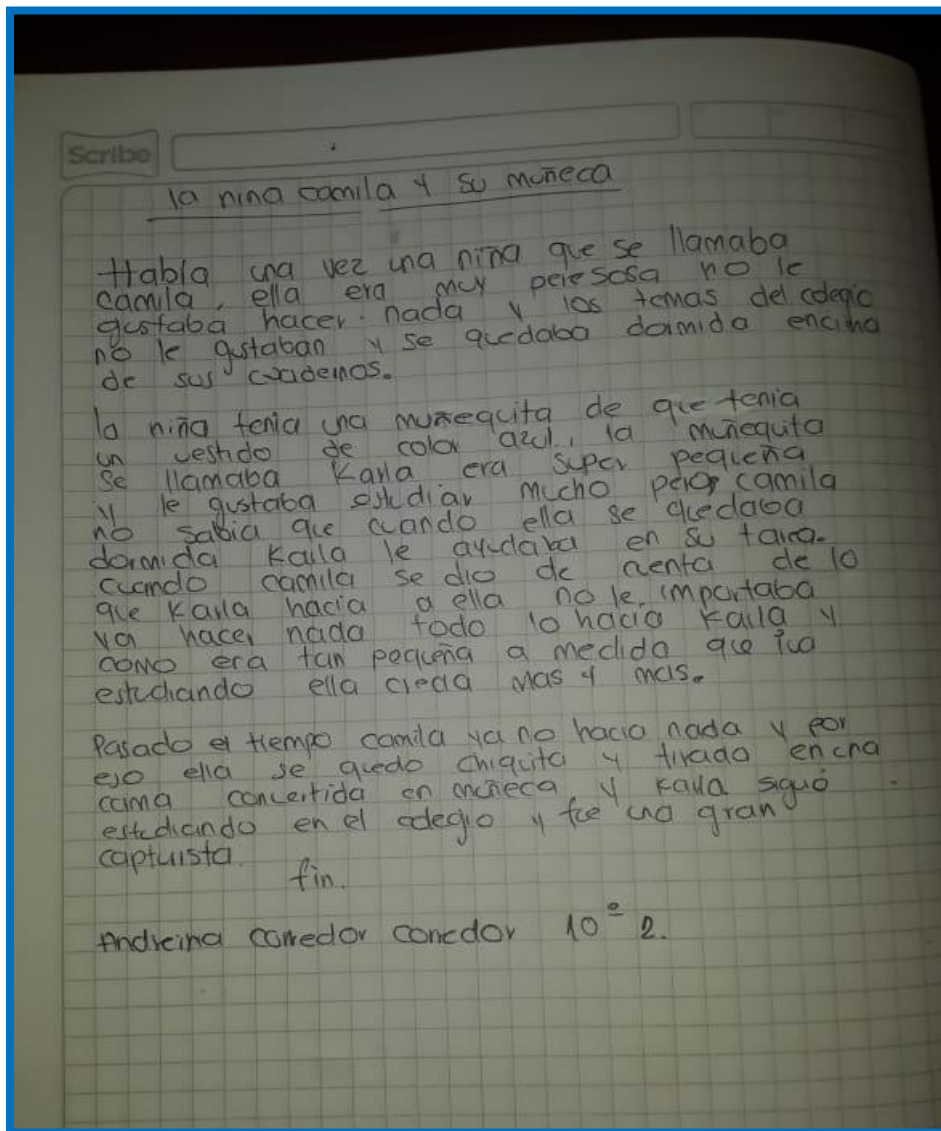 Scribe
la nina camila y su muñeca
Habla una vez una niña que se llamaba
camila, ella era muy peresosa no le
gustaba hacer nada y los temas del colegio
no le gustaban y se quedaba dormida encima
de sus cuadernos.
la niña tenia una muñequita de que tenia
un vestido de color azul, la muñequita
se llamaba Karla era super pequeña
y le gustaba estudiar mucho pero camila
no sabia que cuando ella se quedaba
dormida Karla le ayudaba en su tarea.
cuando camila se dio de cuenta de lo
que Karla hacia a ella no le importaba
ya hacer nada todo lo hacia Karla y
como era tan pequeña a medida que iva
estudiando ella crecia mas y mas.
Pasado el tiempo camila ya no hacia nada y por
eso ella se quedo chiquita y tirado en una
cama convertida en muñeca y Karla siguó
estudiando en el colegio y fue una gran
captuista.
fin.
Andreina corredor corredor 10º 2.